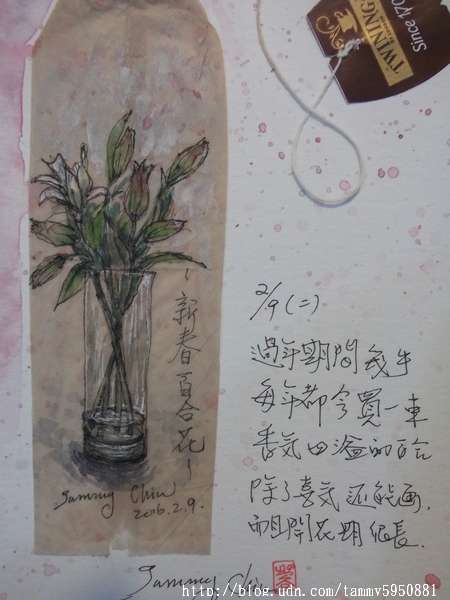 TWININGS
Since 170
~新春百合花~
Tammy Chiu
2016.2.9.
2/9 (二)
過年期間幾乎
每年都會買一束
香気四溢的百合
除了喜気还能画,
而且開花期很長.
Tammy Chiu
http://blog.udn.com/tammy5950881